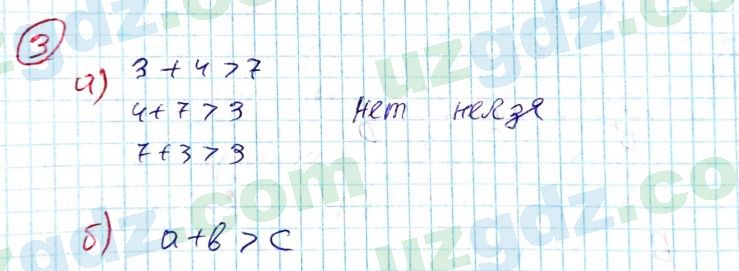 3
а) 3 + 4 > 7
4 + 7 > 3 Нет нелзя
7 + 3 > 3
б) a + b > c
uzgdz.com
uzgdz.com
uzgdz.com
uzgdz.com